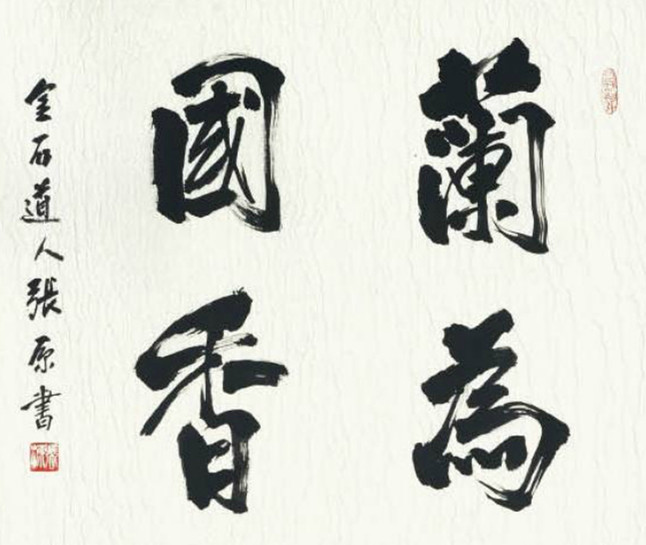 蘭為
國香
金石道人張原書